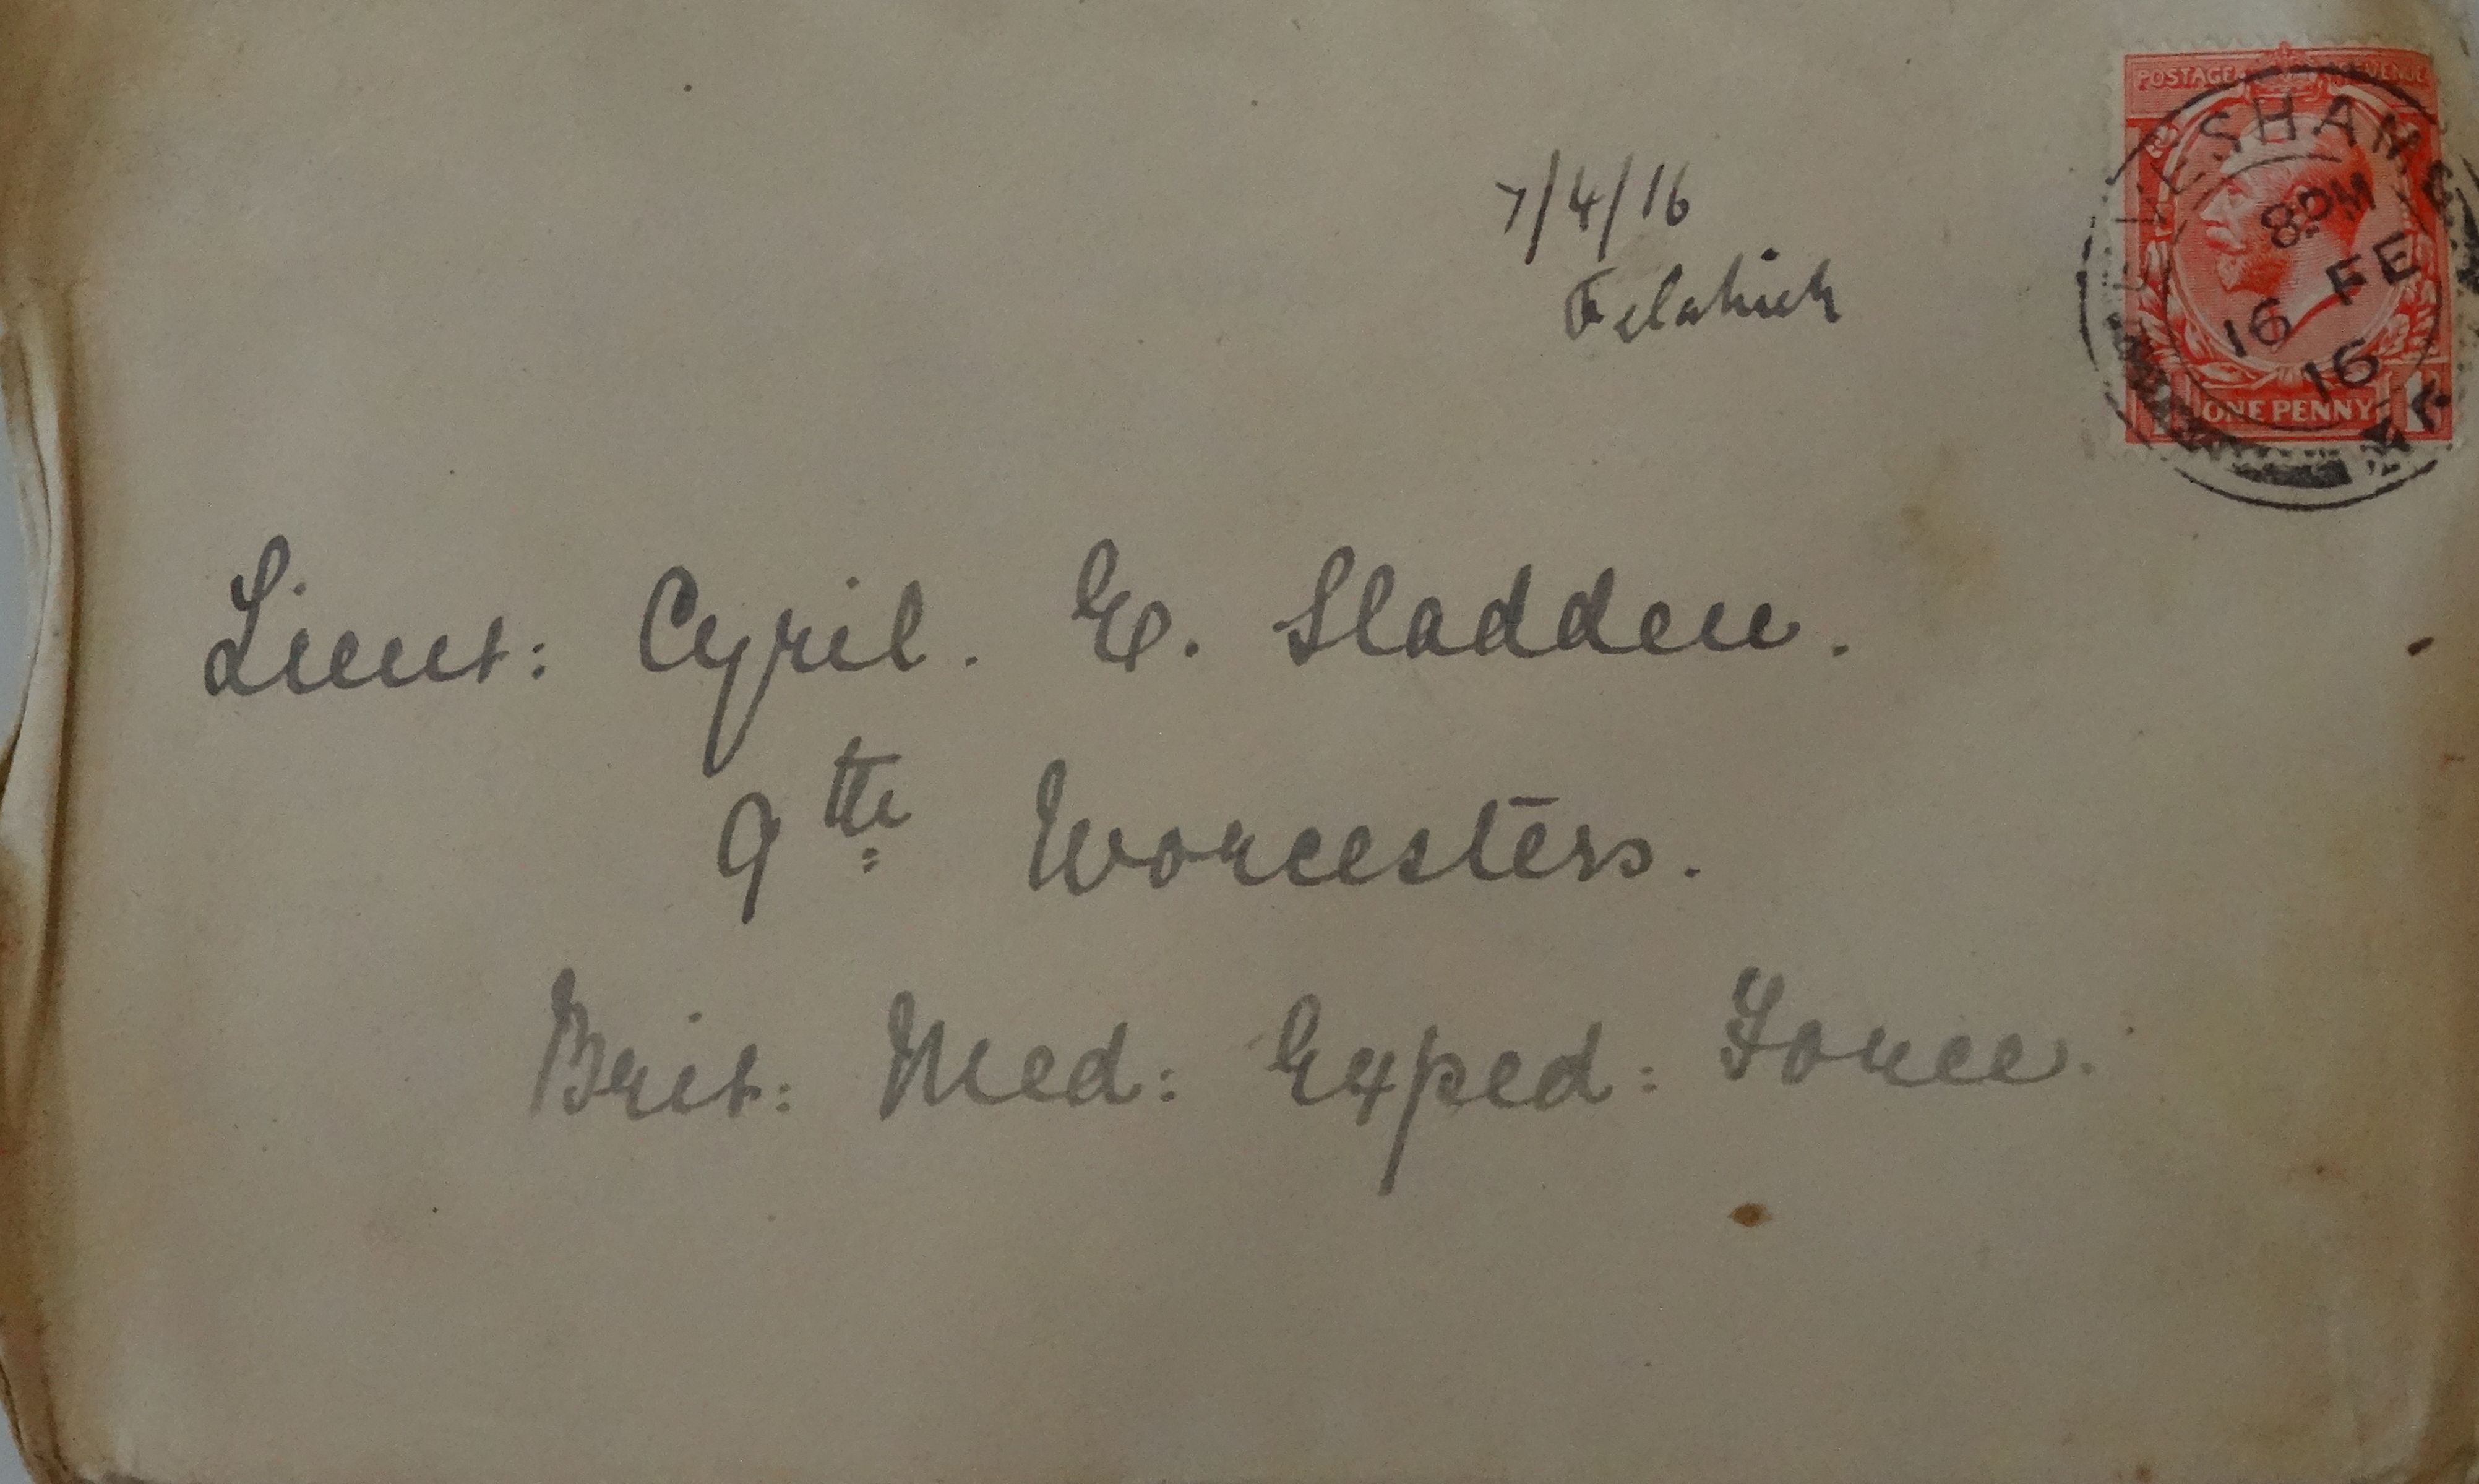 7/4/16
Felahieh
POSTAGE REVENUE
EVESHAM
8 PM
16 FE
16
ONE PENNY
Lieut: Cyril. E. Sladden.
9th Worcesters.
Brit: Med: Exped: Force.